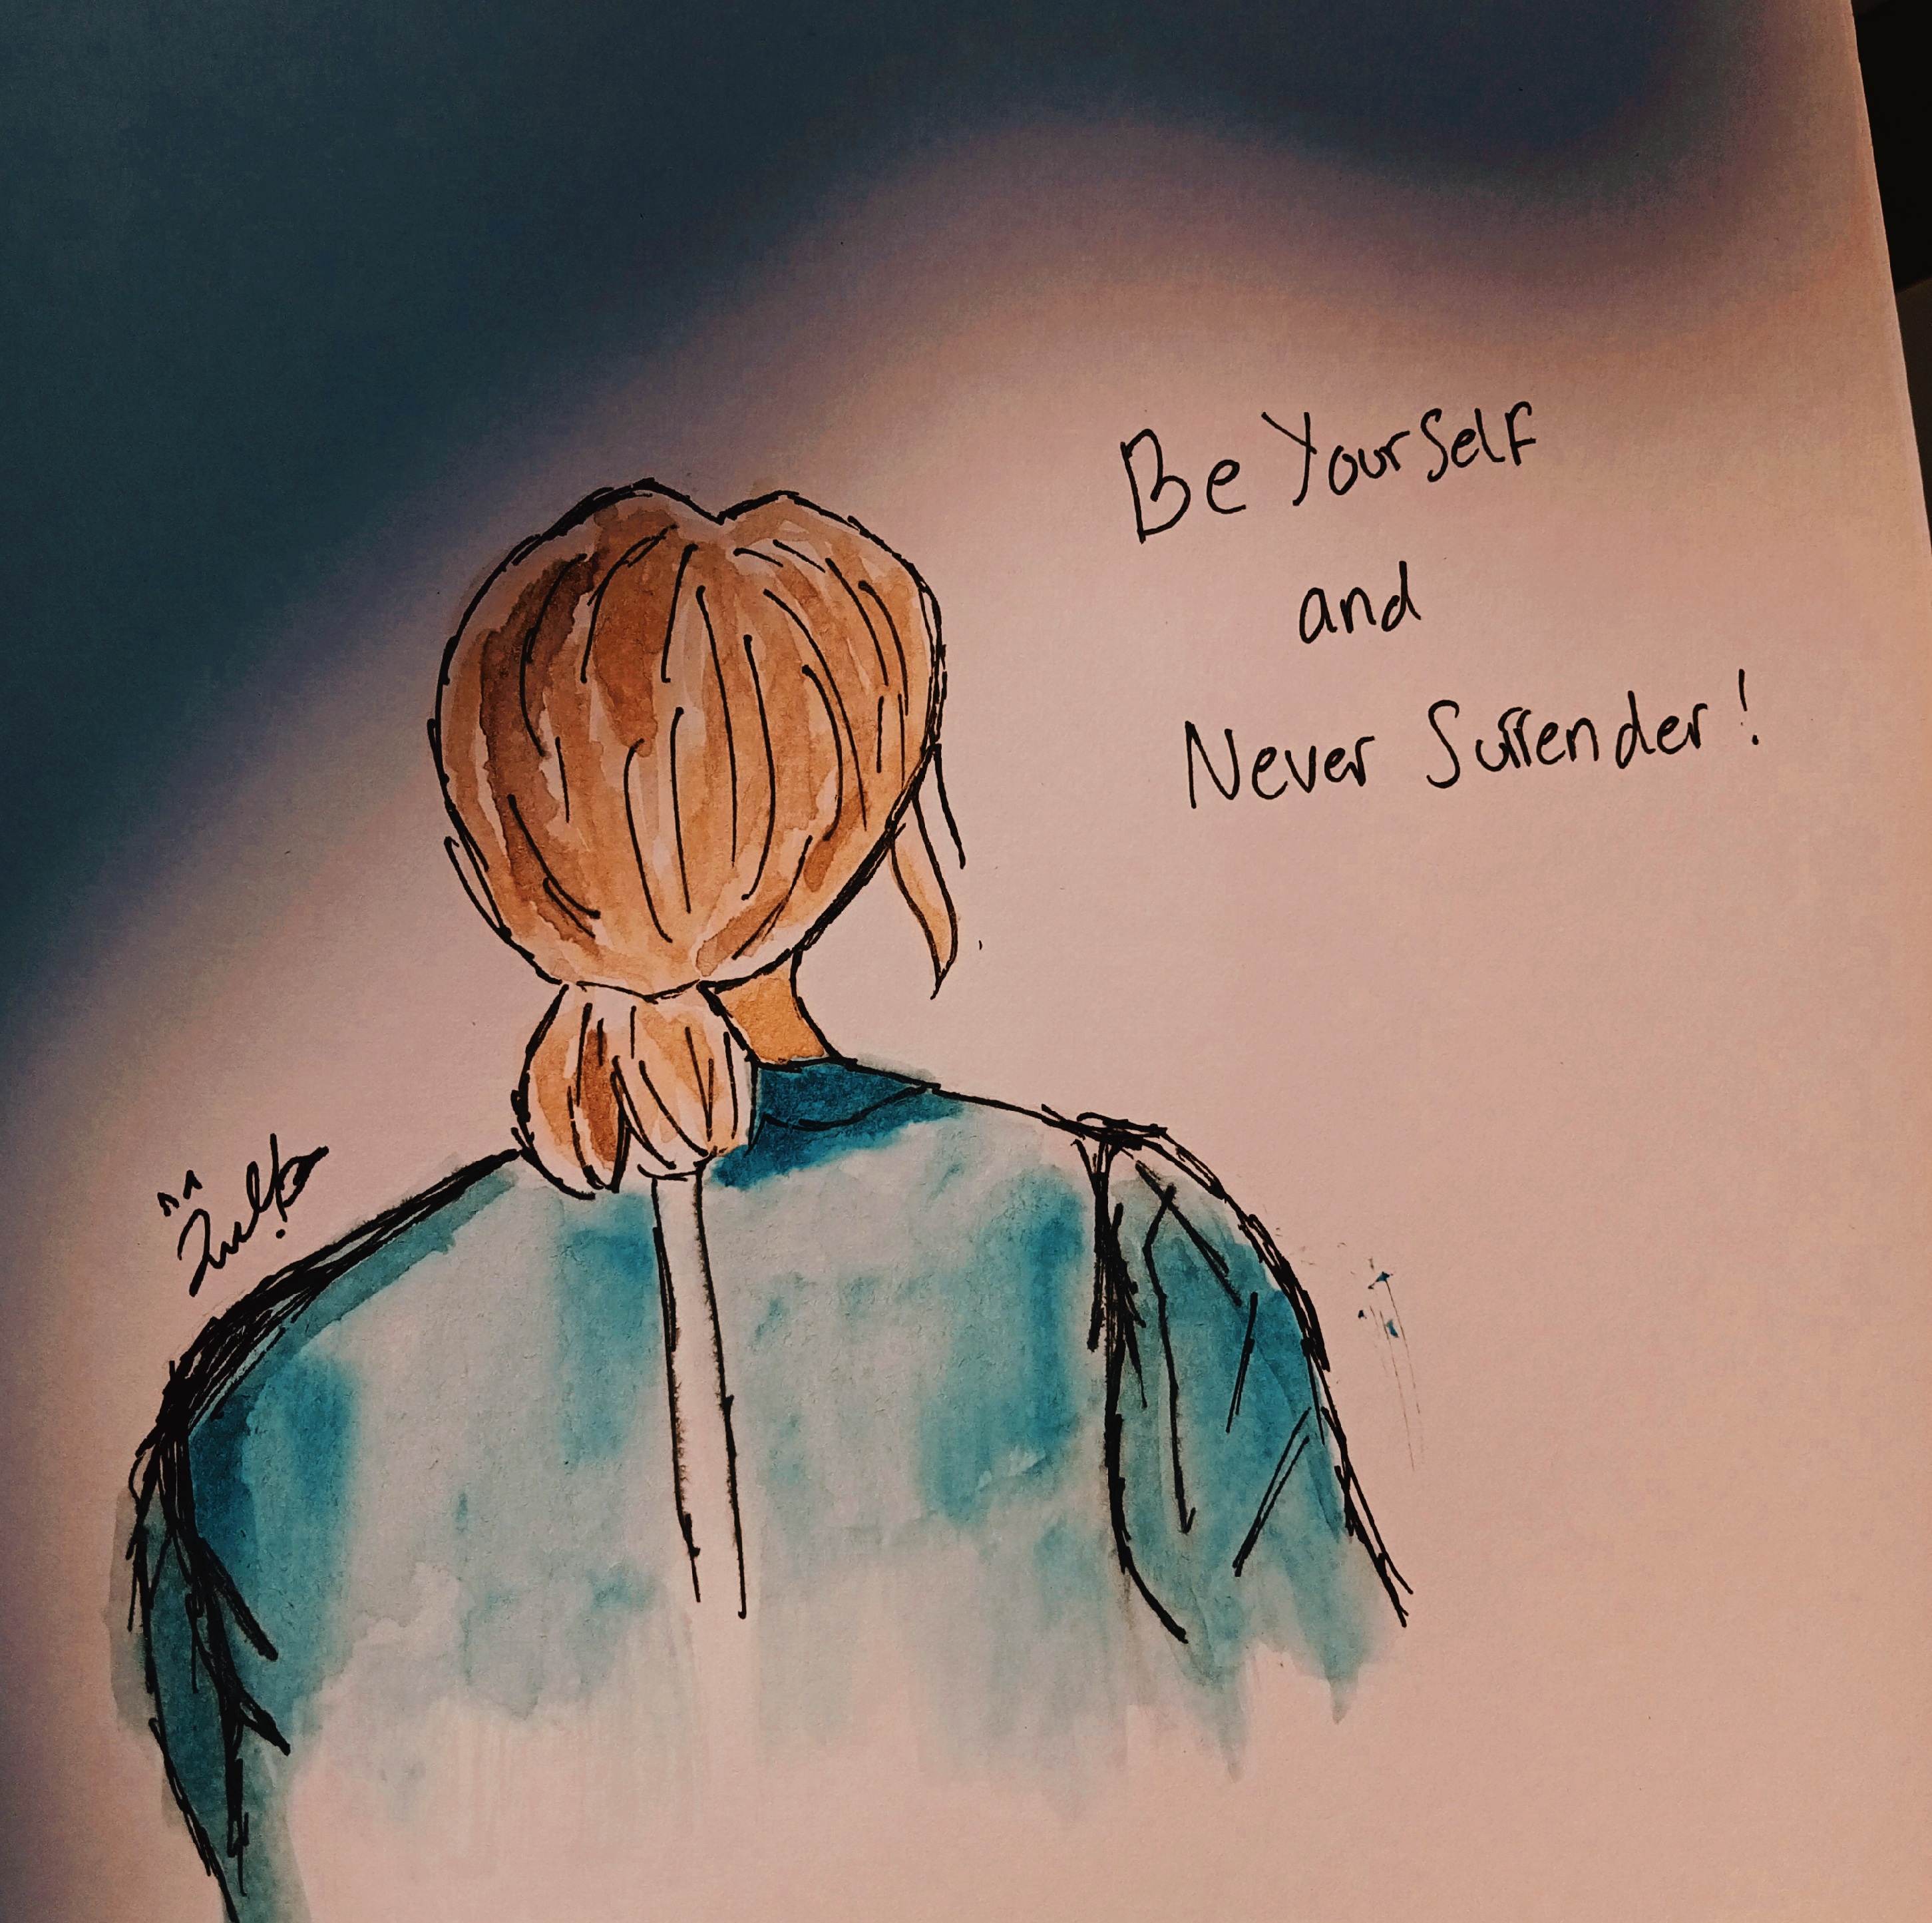 Be Yourself
and
Never Surrender!